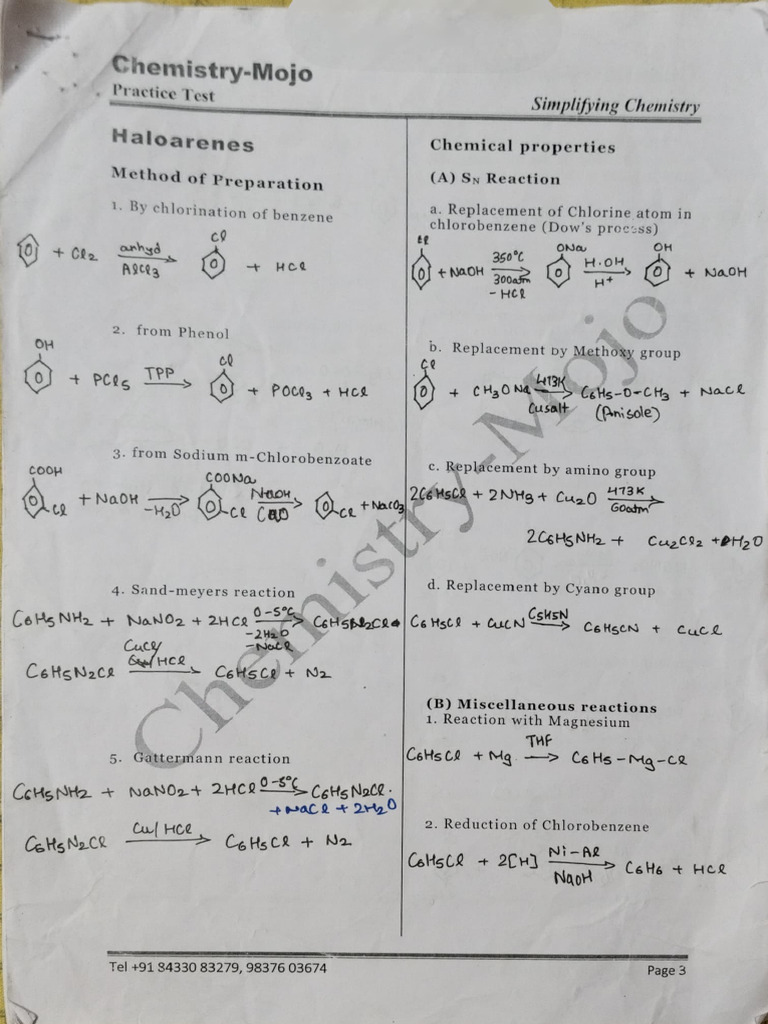 Chemistry-Mojo
Practice Test
Simplifying Chemistry
Haloarenes
Method of Preparation
1. By chlorination of benzene
Cl
+ Cl2 anhyd AlCl3 + HCl
2. from Phenol
OH Cl
+ PCl5 TPP → + POCl3 + HCl
3. from Sodium m-Chlorobenzoate
COOH COONa
Cl + NaOH → -H2O Cl NaOH → CaO Cl + NaCO3
4. Sand-meyers reaction
C6H5NH2 + NaNO2 + 2HCl 0-5°C → C6H5N2Cl
-2H2O
-NaCl
C6H5N2Cl CuCl/HCl → C6H5Cl + N2
5. Gattermann reaction
C6H5NH2 + NaNO2 + 2HCl 0-5°C → C6H5N2Cl
+ NaCl + 2H2O
C6H5N2Cl Cu/HCl → C6H5Cl + N2
Chemical properties
(A) SN Reaction
a. Replacement of Chlorine atom in
chlorobenzene (Dow's process)
Cl ONa OH
+ NaOH 350°C → 300atm H·OH → H+ + NaOH
-HCl
b. Replacement by Methoxy group
Cl
+ CH3ONa 473K → Cu salt C6H5-O-CH3 + NaCl
(Anisole)
c. Replacement by amino group
2C6H5Cl + 2NH3 + Cu2O 473K → 60atm
2C6H5NH2 + Cu2Cl2 + H2O
d. Replacement by Cyano group
C6H5Cl + CuCN C5H5N → C6H5CN + CuCl
(B) Miscellaneous reactions
1. Reaction with Magnesium
C6H5Cl + Mg THF → C6H5-Mg-Cl
2. Reduction of Chlorobenzene
C6H5Cl + 2[H] Ni-Al → NaOH C6H6 + HCl
Chemistry-Mojo
Tel +91 84330 83279, 98376 03674
Page 3